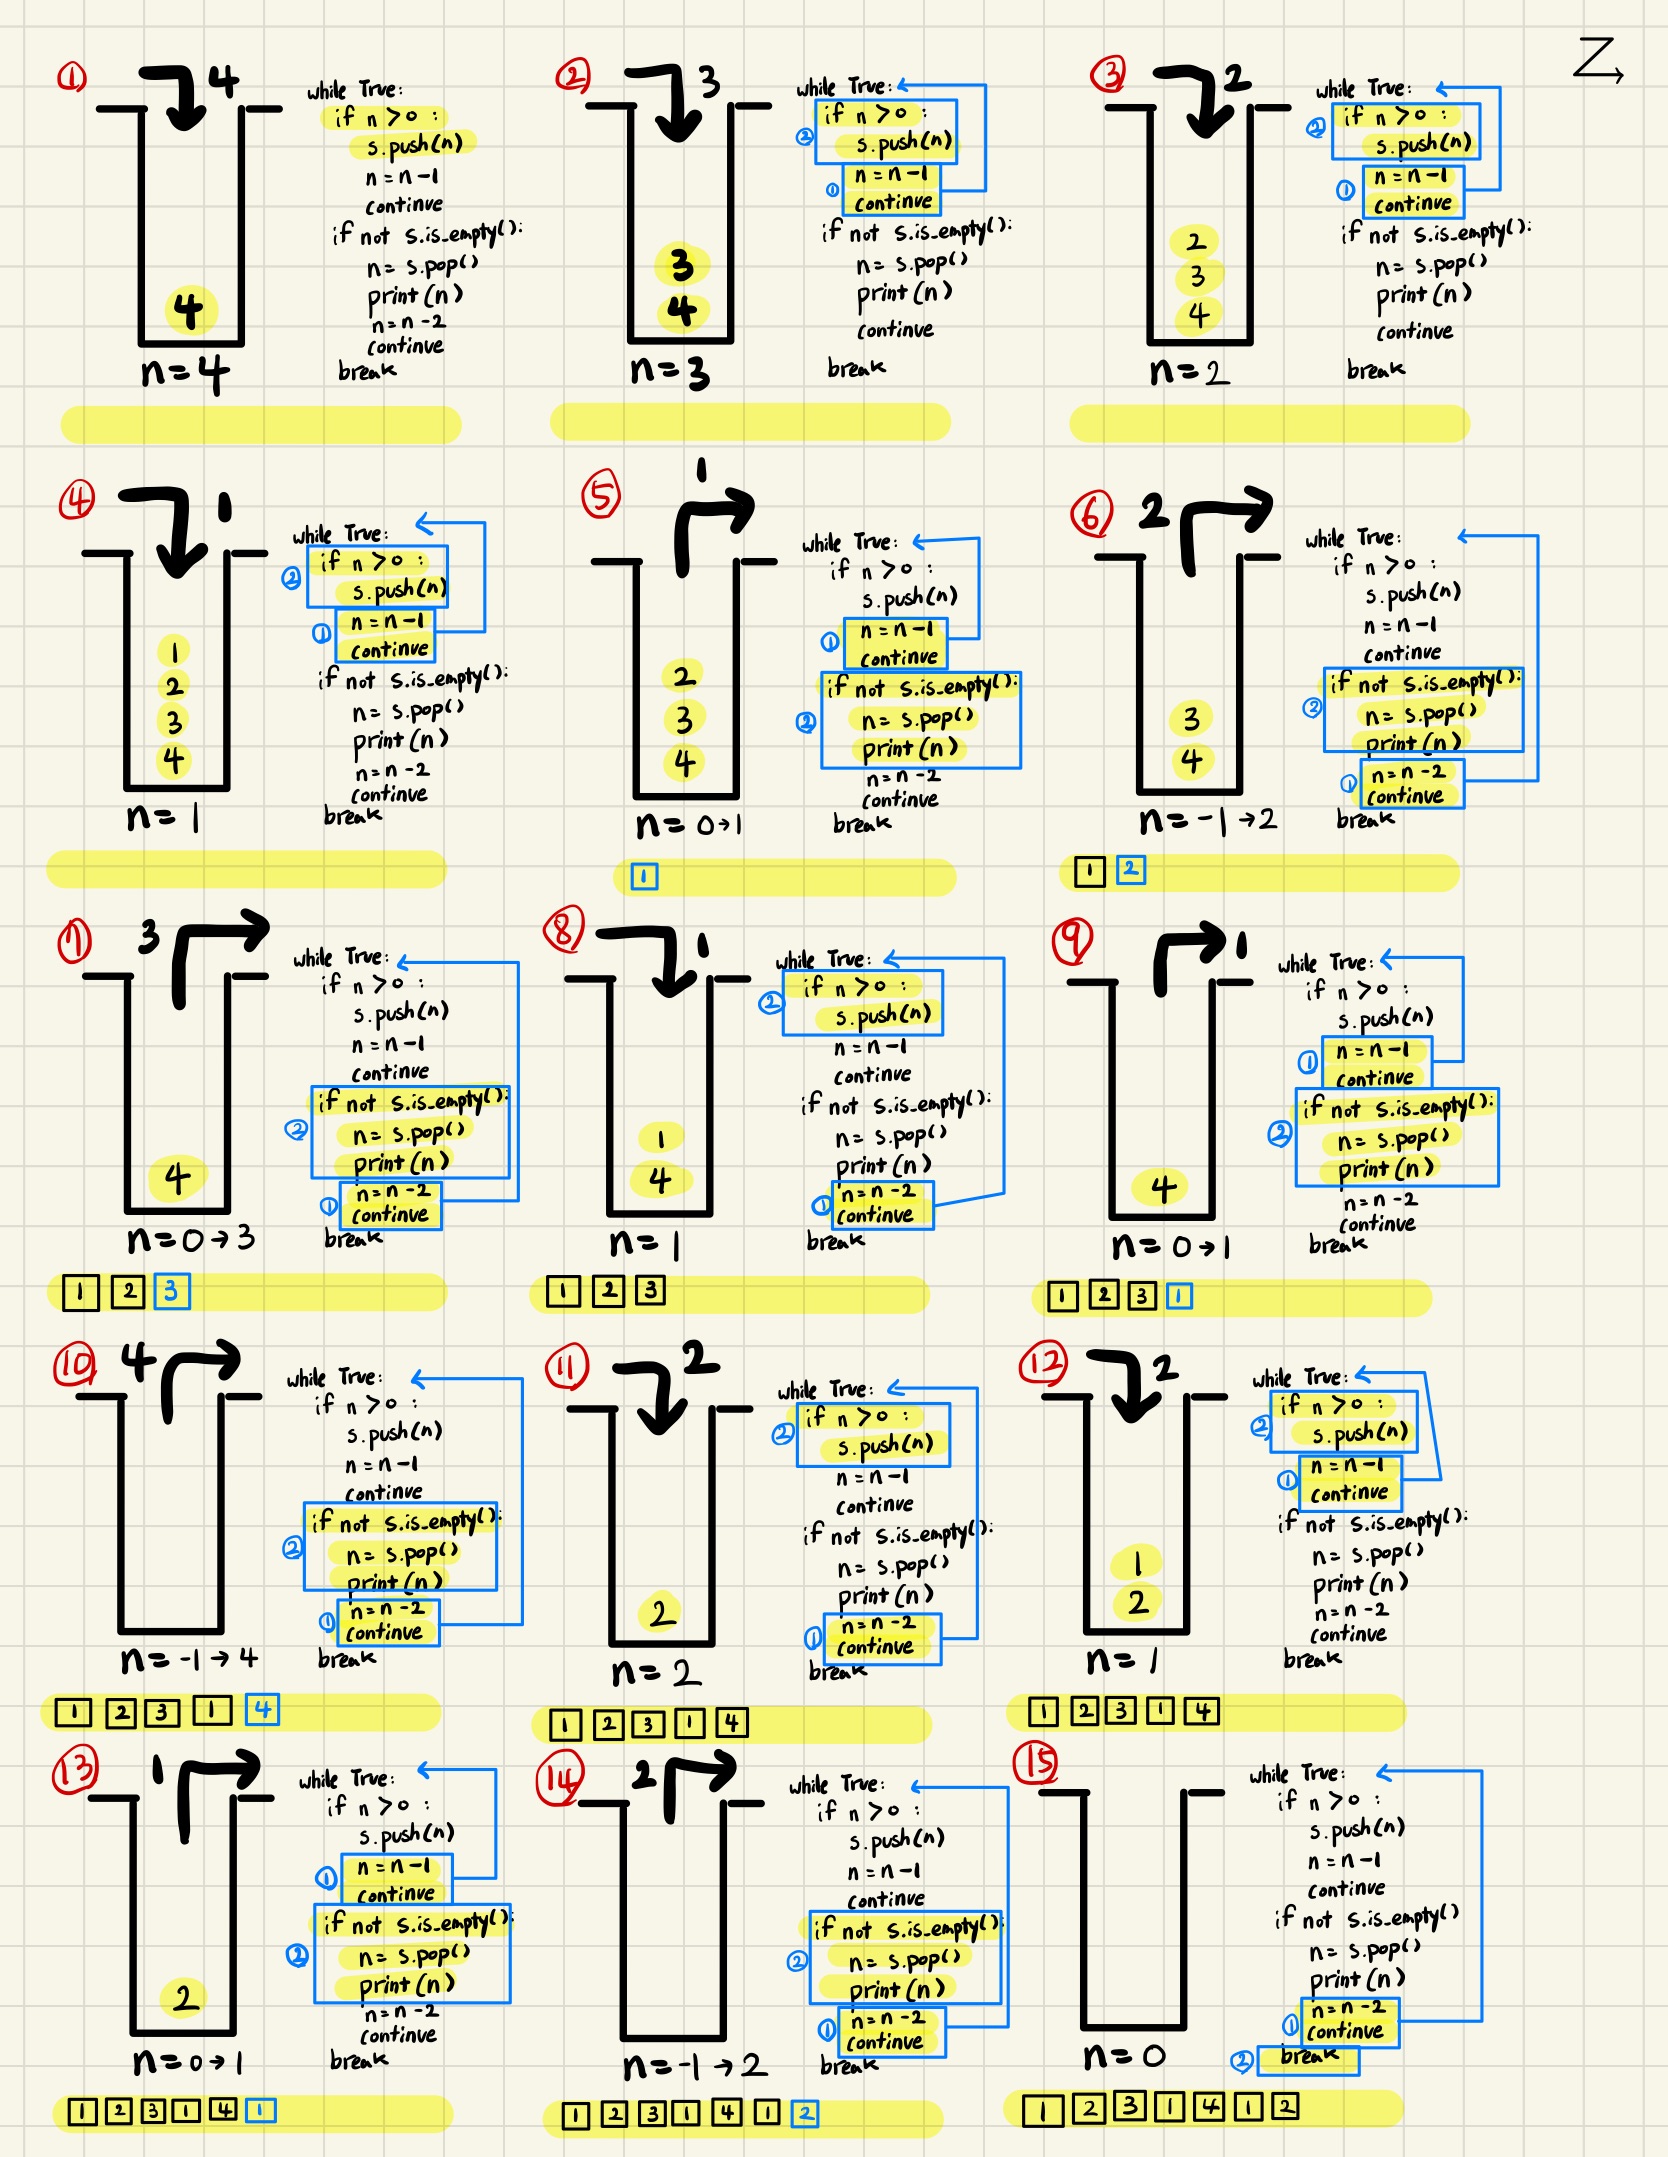 Z
① 4
while True:
if n > 0 :
s.push(n)
n = n - 1
continue
if not s.is_empty():
n = s.pop()
print(n)
n = n - 2
continue
break
4
n = 4
② 3
while True:
② if n > 0 :
s.push(n)
① n = n - 1
continue
if not s.is_empty():
n = s.pop()
print(n)
continue
break
3
4
n = 3
③ 2
while True:
② if n > 0 :
s.push(n)
① n = n - 1
continue
if not s.is_empty():
n = s.pop()
print(n)
continue
break
2
3
4
n = 2
④ 1
while True:
② if n > 0 :
s.push(n)
① n = n - 1
continue
if not s.is_empty():
n = s.pop()
print(n)
n = n - 2
continue
break
1
2
3
4
n = 1
⑤ 1
while True:
if n > 0 :
s.push(n)
① n = n - 1
continue
② if not s.is_empty():
n = s.pop()
print(n)
n = n - 2
continue
break
2
3
4
n = 0 → 1
1
⑥ 2
while True:
if n > 0 :
s.push(n)
n = n - 1
continue
② if not s.is_empty():
n = s.pop()
print(n)
① n = n - 2
continue
break
3
4
n = -1 → 2
1 2
⑦ 3
while True:
if n > 0 :
s.push(n)
n = n - 1
continue
② if not s.is_empty():
n = s.pop()
print(n)
① n = n - 2
continue
break
4
n = 0 → 3
1 2 3
⑧ 1
while True:
② if n > 0 :
s.push(n)
n = n - 1
continue
if not s.is_empty():
n = s.pop()
print(n)
① n = n - 2
continue
break
1
4
n = 1
1 2 3
⑨ 1
while True:
if n > 0 :
s.push(n)
① n = n - 1
continue
② if not s.is_empty():
n = s.pop()
print(n)
n = n - 2
continue
break
4
n = 0 → 1
1 2 3 1
⑩ 4
while True:
if n > 0 :
s.push(n)
n = n - 1
continue
② if not s.is_empty():
n = s.pop()
print(n)
① n = n - 2
continue
break
n = -1 → 4
1 2 3 1 4
⑪ 2
while True:
② if n > 0 :
s.push(n)
n = n - 1
continue
if not s.is_empty():
n = s.pop()
print(n)
① n = n - 2
continue
break
2
n = 2
1 2 3 1 4
⑫ 2
while True:
② if n > 0 :
s.push(n)
① n = n - 1
continue
if not s.is_empty():
n = s.pop()
print(n)
n = n - 2
continue
break
1
2
n = 1
1 2 3 1 4
⑬ 1
while True:
if n > 0 :
s.push(n)
① n = n - 1
continue
② if not s.is_empty():
n = s.pop()
print(n)
n = n - 2
continue
break
2
n = 0 → 1
1 2 3 1 4 1
⑭ 2
while True:
if n > 0 :
s.push(n)
n = n - 1
continue
② if not s.is_empty():
n = s.pop()
print(n)
① n = n - 2
continue
break
n = -1 → 2
1 2 3 1 4 1 2
⑮
while True:
if n > 0 :
s.push(n)
n = n - 1
continue
if not s.is_empty()
n = s.pop()
print(n)
① n = n - 2
continue
② break
n = 0
1 2 3 1 4 1 2